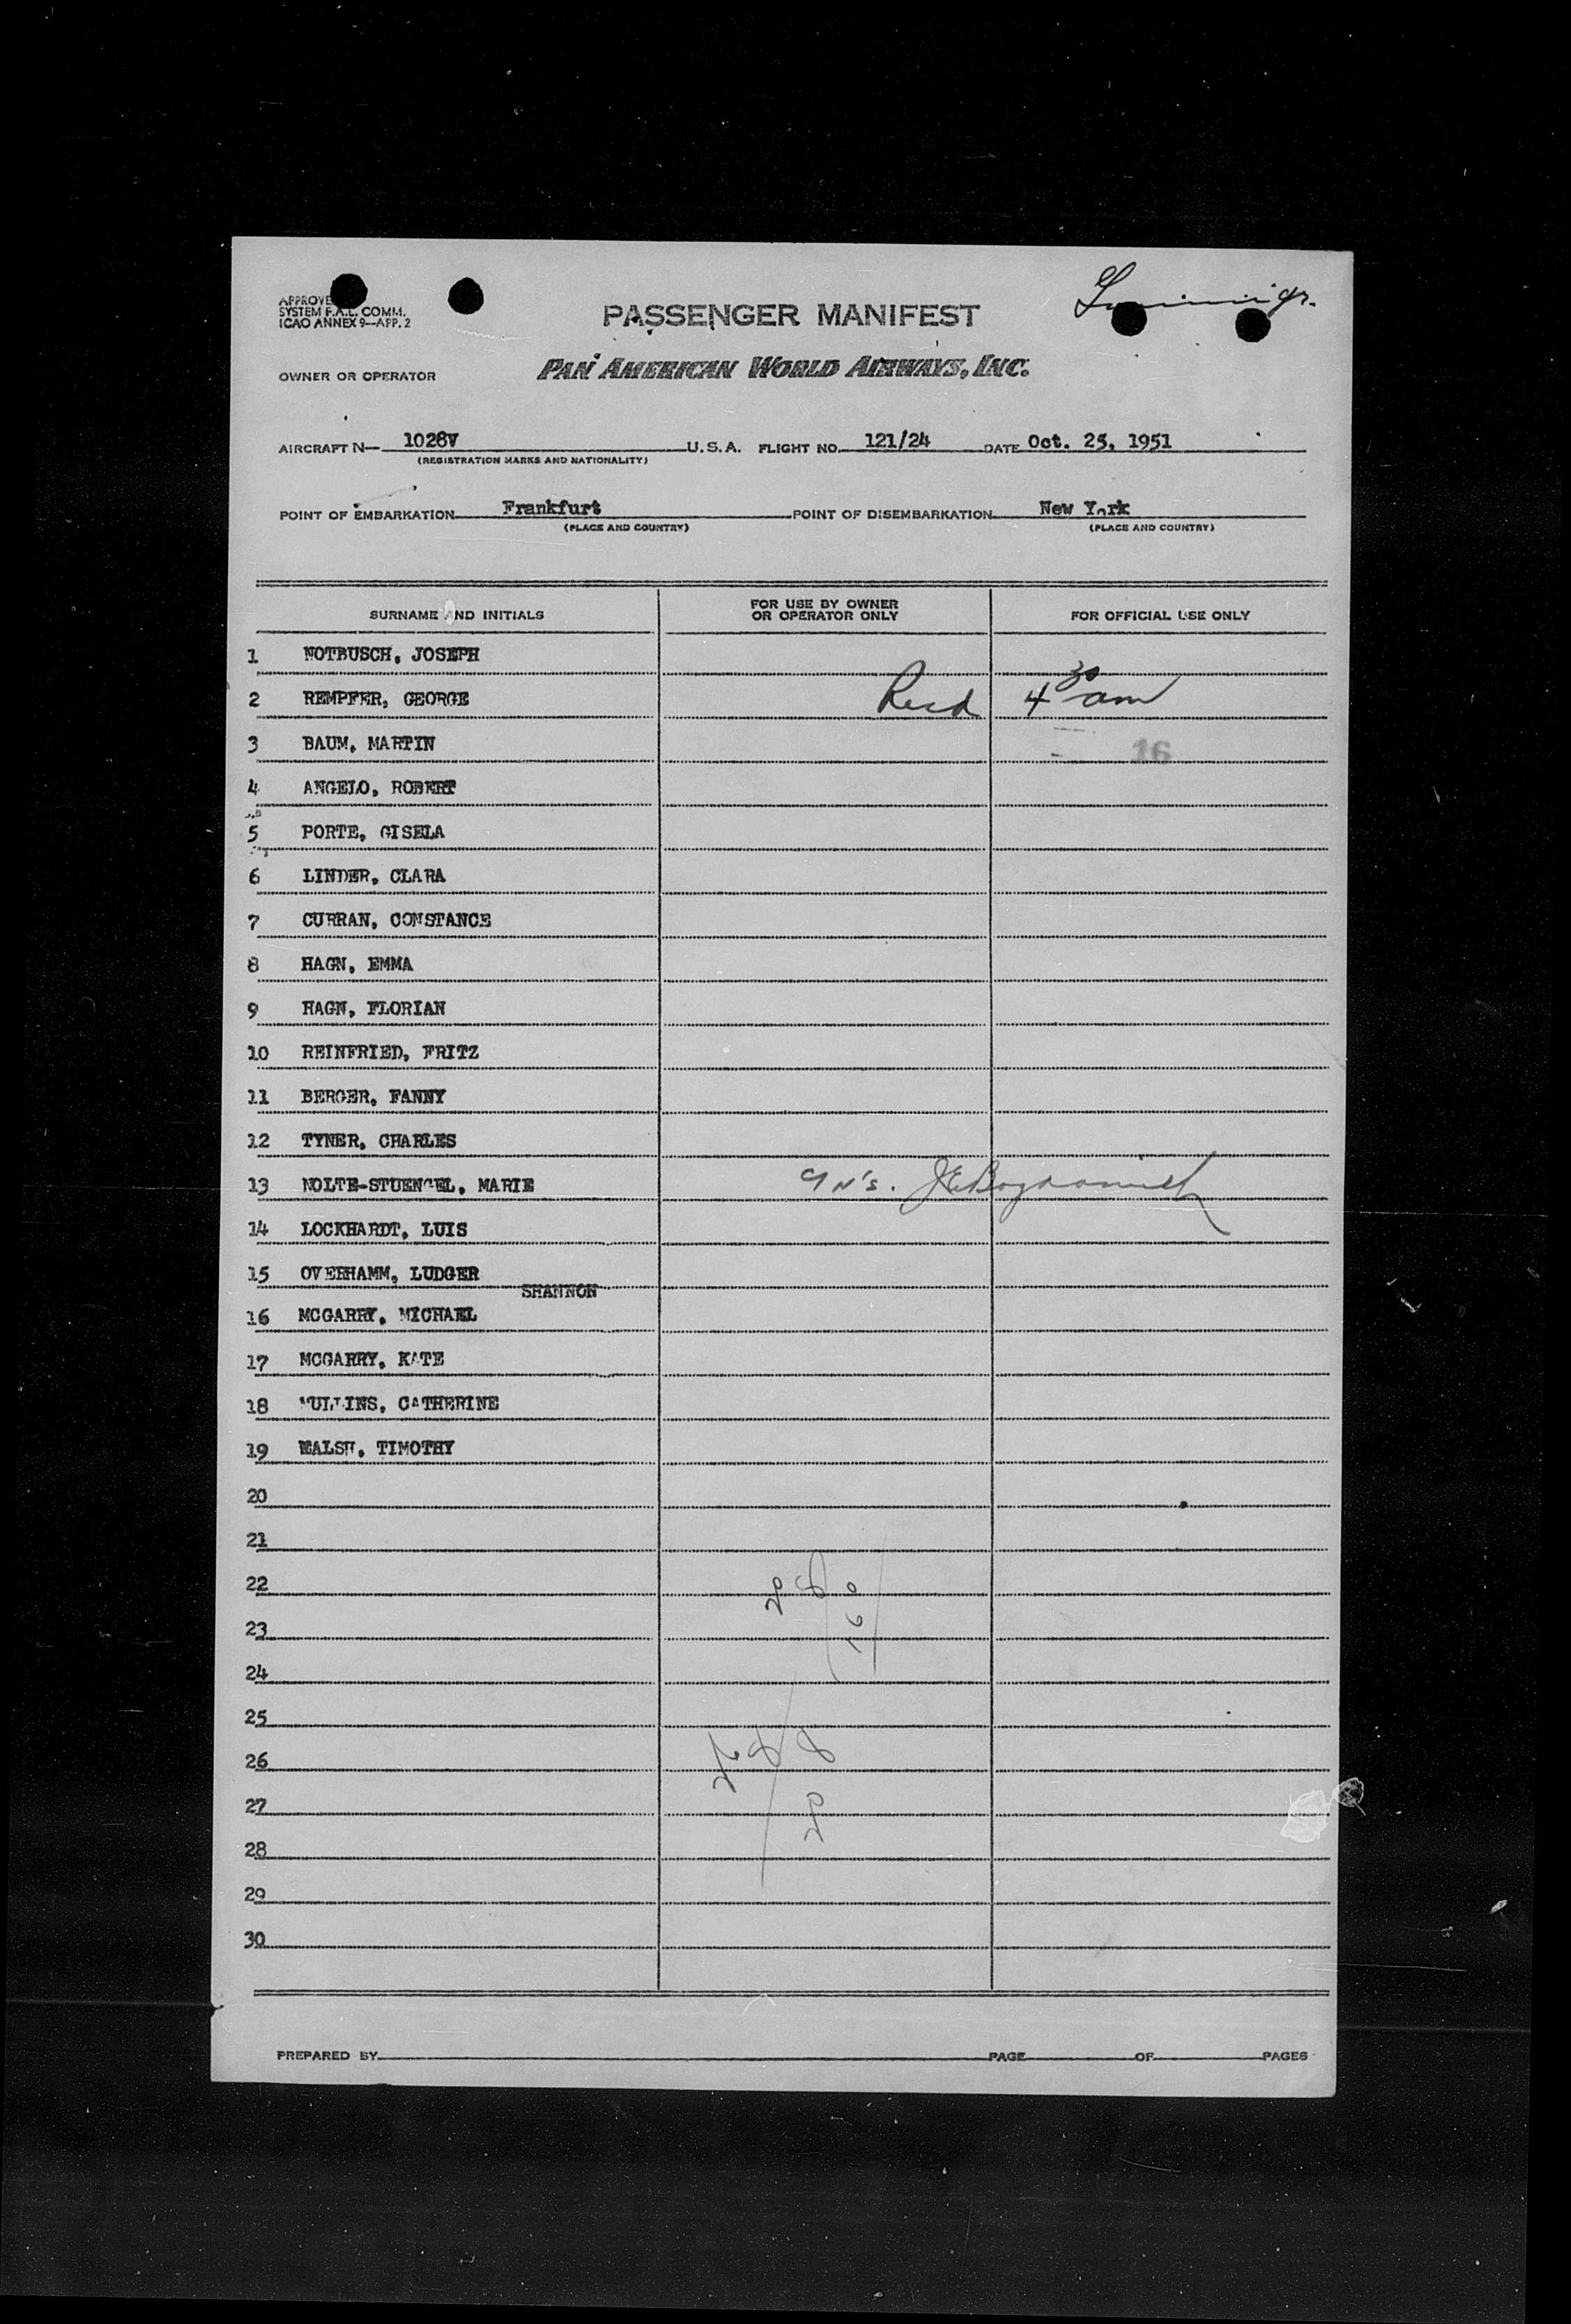 Immigr.
APPROVE
SYSTEM F.A.L. COMM.
ICAO ANNEX 9—APP. 2
PASSENGER MANIFEST
OWNER OR OPERATOR PAN AMERICAN WORLD AIRWAYS, INC.
AIRCRAFT N— 1028V U.S.A. FLIGHT NO. 121/24 DATE Oct. 25, 1951
(REGISTRATION MARKS AND NATIONALITY)
POINT OF EMBARKATION Frankfurt POINT OF DISEMBARKATION New York
(PLACE AND COUNTRY) (PLACE AND COUNTRY)
SURNAME AND INITIALS FOR USE BY OWNER OR OPERATOR ONLY FOR OFFICIAL USE ONLY
1 NOTBUSCH, JOSEPH
2 REMPFER, GEORGE Recd 4 30 am
3 BAUM, MARTIN 16
4 ANGELO, ROBERT
5 PORTE, GISELA
6 LINDER, CLARA
7 CURRAN, CONSTANCE
8 HAGN, EMMA
9 HAGN, FLORIAN
10 REINFRIED, FRITZ
11 BERGER, FANNY
12 TYNER, CHARLES
13 NOLTE-STUENGEL, MARIE
14 LOCKHARDT, LUIS
15 OVERHAMM, LUDGER
SHANNON
16 MCGARRY, MICHAEL
17 MCGARRY, KATE
18 MULLINS, CATHERINE
19 WALSH, TIMOTHY
20
21
22
23
24
25
26
27
28
29
30
PREPARED BY PAGE OF PAGES